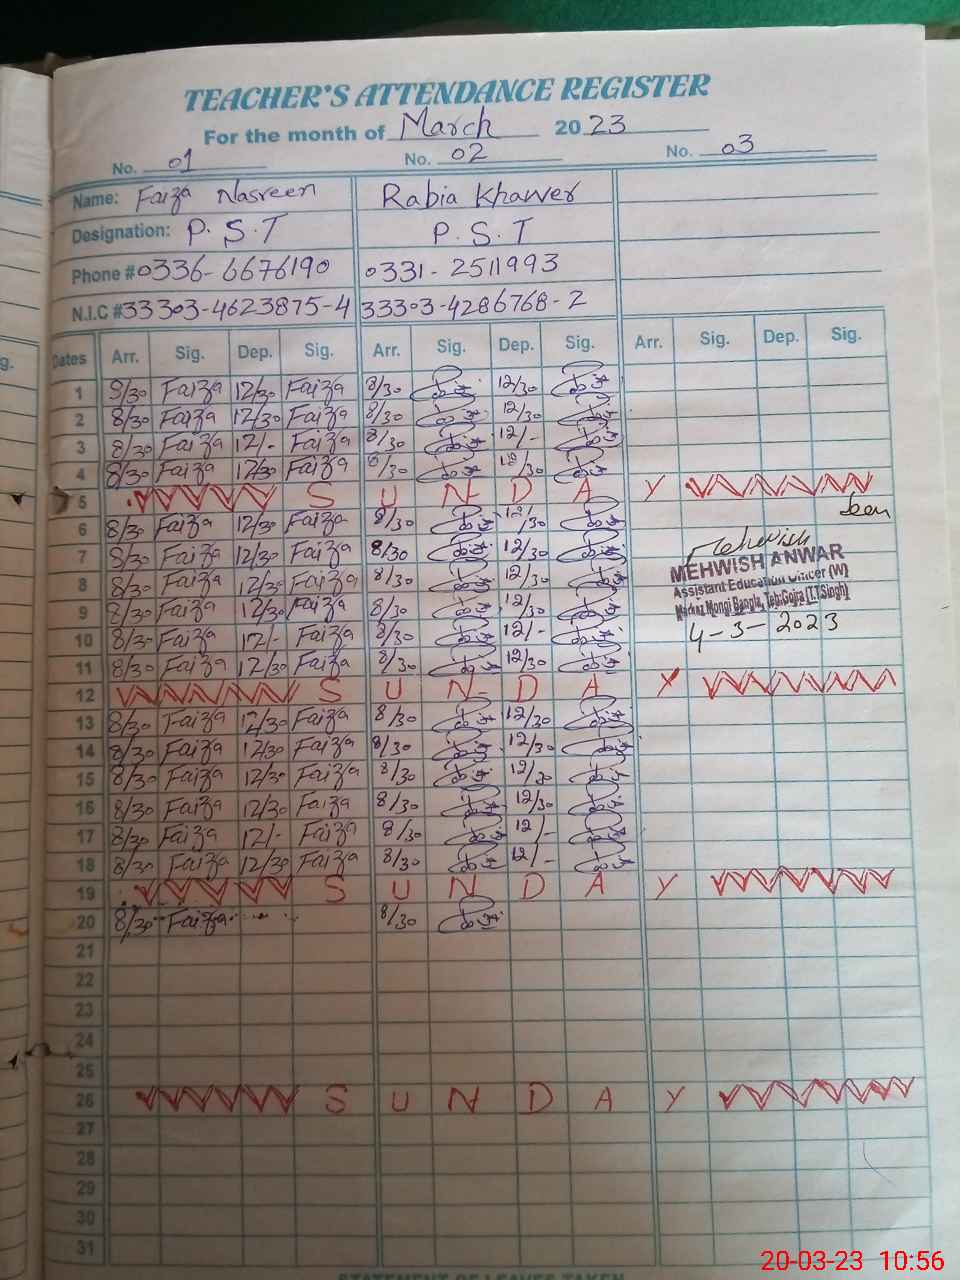 TEACHER'S ATTENDANCE REGISTER
For the month of March 2023
No. 01 No. 02 No. 03
Name: Faiza Nasreen Rabia Khawer
Designation: P.S.T P.S.T
Phone # 0336-6676190 0331-2511993
N.I.C # 33303-4623875-4 33303-4286768-2
Dates Arr. Sig. Dep. Sig. Arr. Sig. Dep. Sig. Arr. Sig. Dep. Sig.
1 8/30 Faiza 12/30 Faiza 8/30 12/30
2 8/30 Faiza 12/30 Faiza 8/30 12/30
3 8/30 Faiza 12/- Faiza 8/30 12/-
4 8/30 Faiza 12/30 Faiza 8/30 12/30
5 S U N D A Y
Seen
6 8/30 Faiza 12/30 Faiza 8/30 12/30
7 8/30 Faiza 12/30 Faiza 8/30 12/30
Mehwish
MEHWISH ANWAR
8 8/30 Faiza 12/30 Faiza 8/30 12/30
Assistant Education Officer (W)
9 8/30 Faiza 12/30 Faiza 8/30 12/30
Markaz Mongi Bangla, Teh:Gojra (T.T.Singh)
10 8/30 Faiza 12/- Faiza 8/30 12/-
4-3-2023
11 8/30 Faiza 12/30 Faiza 8/30 12/30
12 S U N D A Y
13 8/30 Faiza 12/30 Faiza 8/30 12/30
14 8/30 Faiza 12/30 Faiza 8/30 12/30
15 8/30 Faiza 12/30 Faiza 8/30 12/30
16 8/30 Faiza 12/30 Faiza 8/30 12/30
17 8/30 Faiza 12/- Faiza 8/30 12/-
18 8/30 Faiza 12/30 Faiza 8/30 12/-
19 S U N D A Y
20 8/30 Faiza 8/30
21
22
23
24
25
26 S U N D A Y
27
28
29
30
31
STATEMENT OF LEAVES TAKEN
20-03-23 10:56